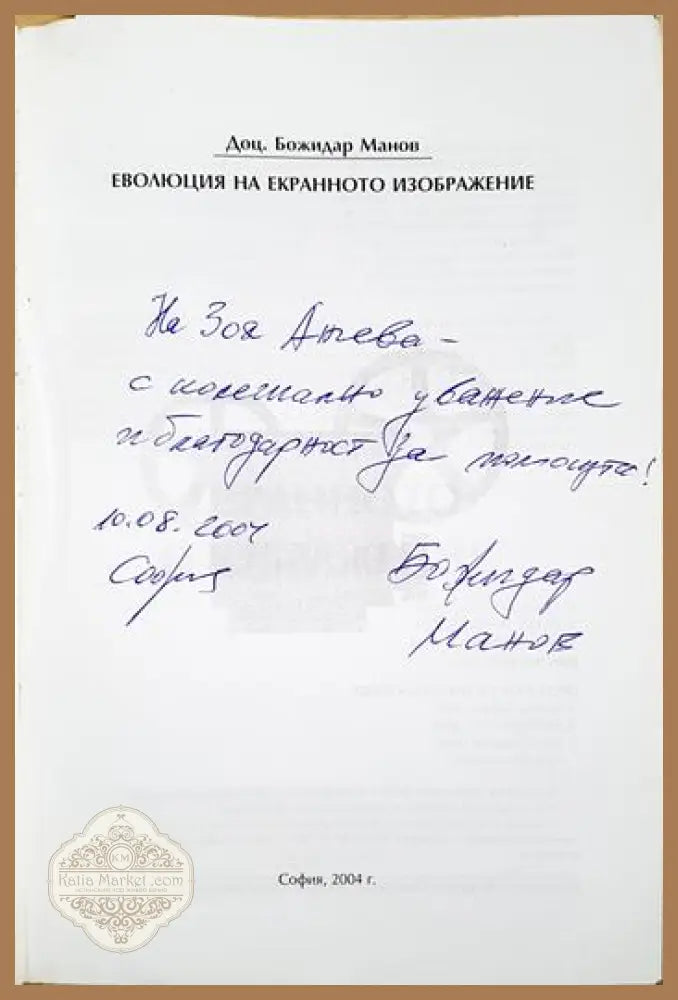 Доц. Божидар Манов
ЕВОЛЮЦИЯ НА ЕКРАННОТО ИЗОБРАЖЕНИЕ
На Зоя Анчева –
с колегиално уважение
и благодарност за помощта!
10.08.2004
София
Божидар
Манов
София, 2004 г.
KM
Katia Market .com